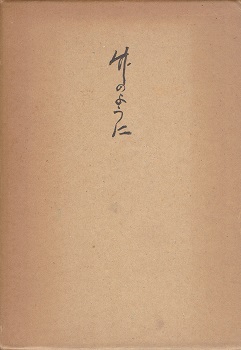 竹のように